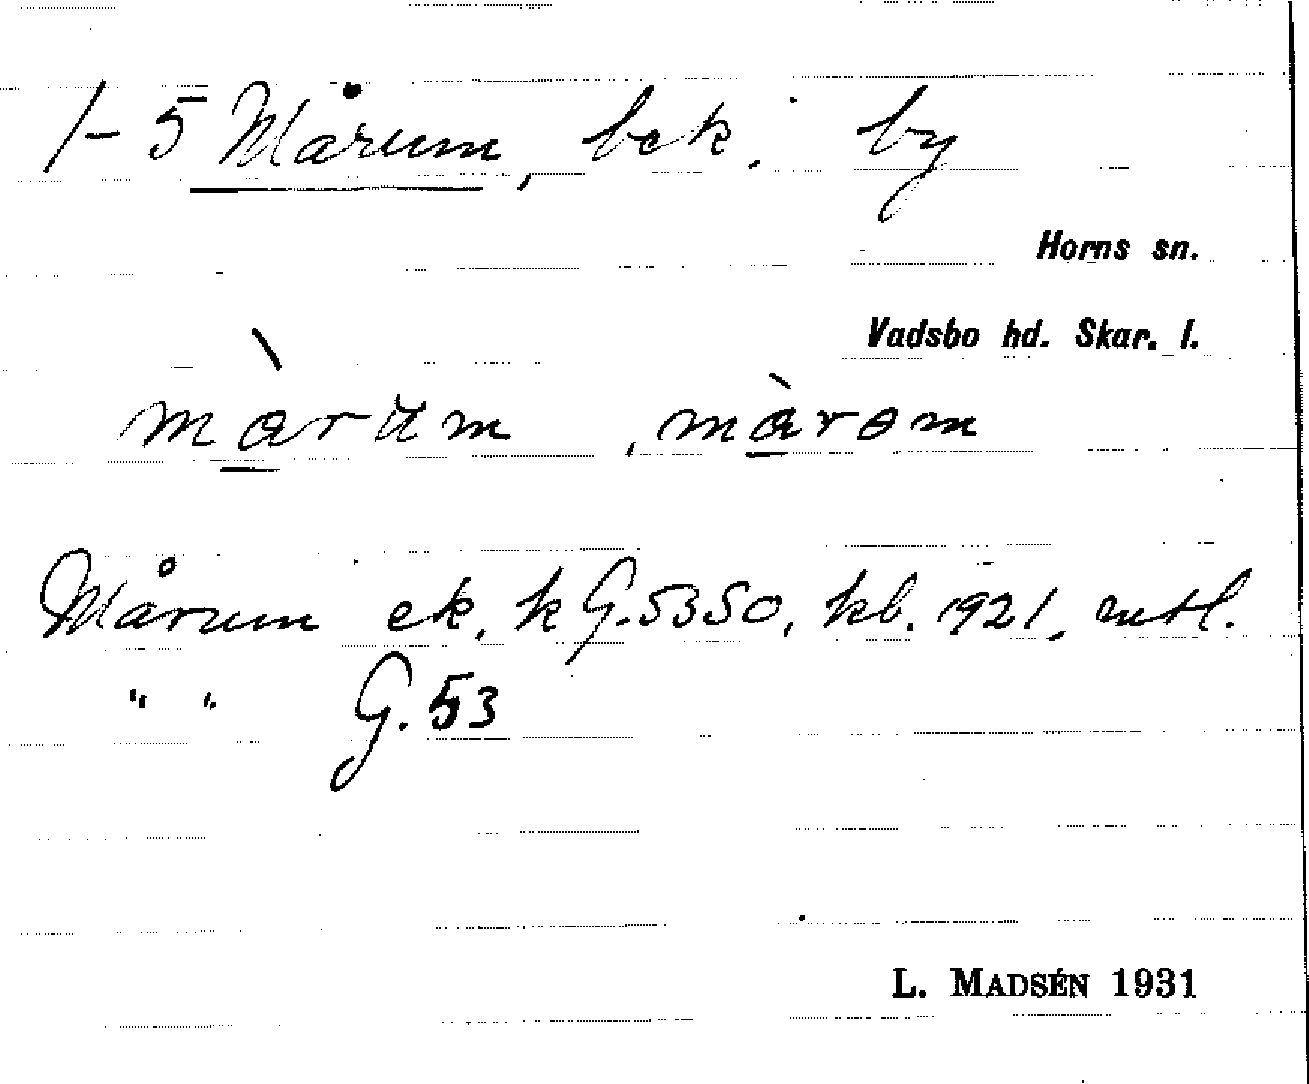 1-5 Mårum, bek. by
Horns sn.
Vadsbo hd. Skar. l.
màrum, màrom
Mårum ek. k G. 5350, kb. 1921, mtl.
" " G. 53
L. MADSÉN 1931